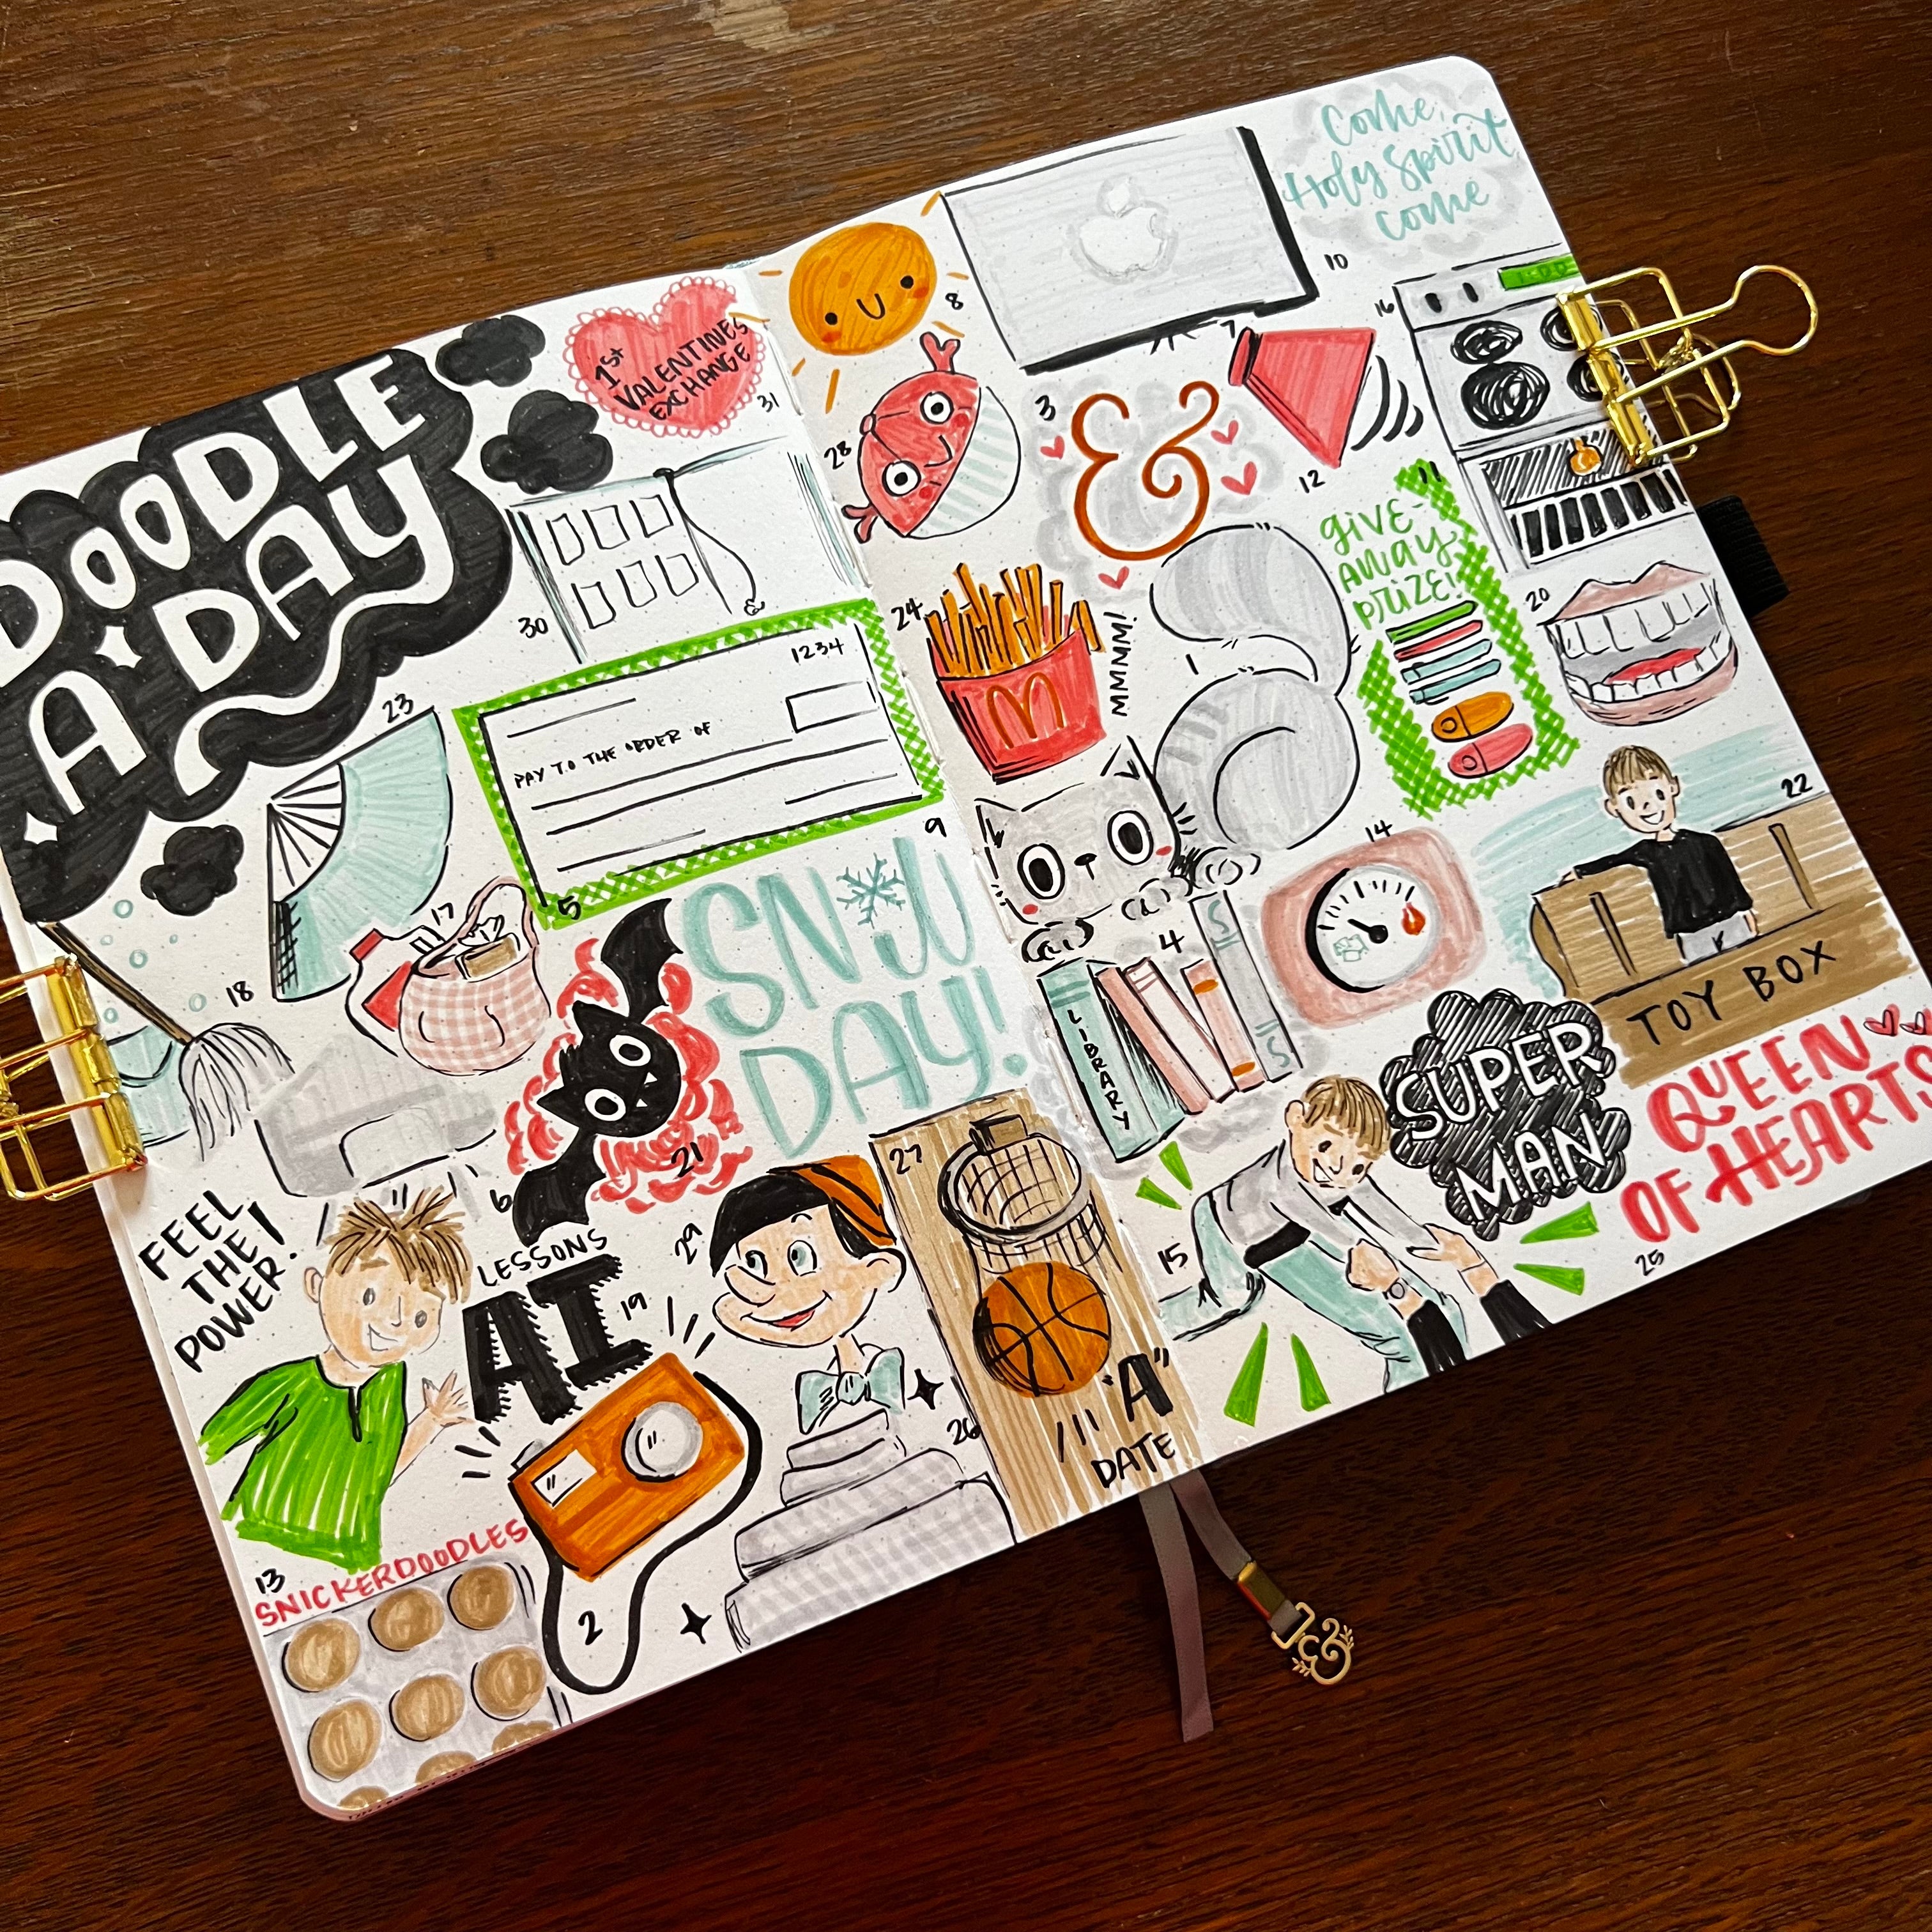 DOODLE
A DAY
1st
VALENTINES
EXCHANGE
31
30
23
1234
PAY TO THE ORDER OF
5
18
17
SNOW
DAY!
9
6
21
FEEL
THE
POWER!
LESSONS
AI
19
29
27
"A"
DATE
26
2
13
SNICKERDOODLES
8
28
7
Come,
Holy Spirit
come
10
16
3
&
12
11
GIVE-
AWAY
PRIZE!
24
MMMM!
1
20
14
22
TOY BOX
4
LIBRARY
SUPER
MAN
15
QUEEN
OF HEARTS
25